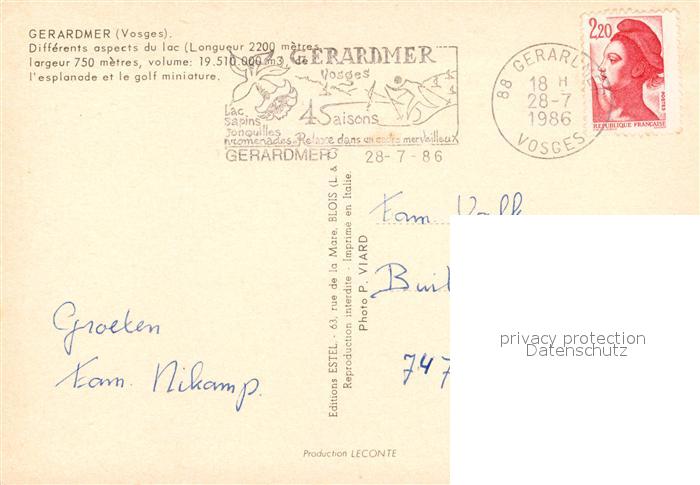 GERARDMER (Vosges).
Différents aspects du lac (Longueur 2200 mètres,
largeur 750 mètres, volume: 19.510.000 m3, de
l'esplanade et le golf miniature.
GERARDMER
Vosges
4 Saisons
Lac
Sapins
Jonquilles
Promenades - Relaxe dans un cadre merveilleux
GERARDMER 28-7-86
88 GERARDMER
18 H
28-7
1986
VOSGES
2,20
POSTES
REPUBLIQUE FRANÇAISE
Editions ESTEL - 63, rue de la Mare, BLOIS (L. &
Reproduction interdite - Imprimé en Italie.
Photo P. VIARD
Fam.
747
Groeten
Fam. Nikamp.
privacy protection
Datenschutz
Production LECONTE